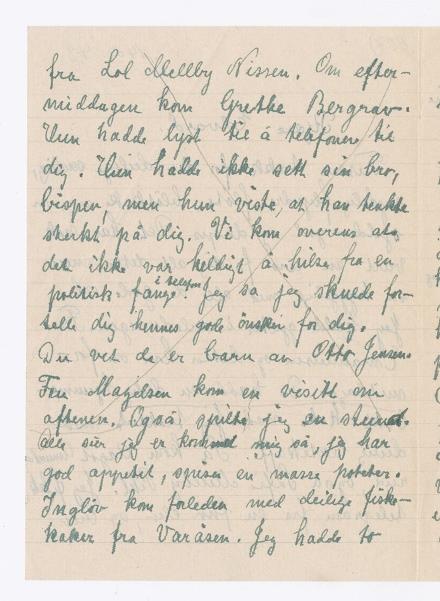 fra Lol Mellby Nissen. Om efter-
middagen kom Grethe Bergrav.
Hun hadde lyst til å telefonere til
dig. Hun hadde ikke sett sin bror,
bispen, men hun viste, at han tenkte
sterkt på dig. Vi kom overens at
det ikke var heldigt å hilse fra en
politisk fange i telefon. Jeg sa jeg skulde for-
telle dig hennes gode ønsker for dig.
Du vet de er barn av Otto Jensen.
Magelsen kom en visitt om
aftenen. Også spilte jeg en stund.
Alle sier jeg er kommet mig så, jeg har
god appetit, spiser en masse poteter.
Ingløv kom forleden med deilige fiske-
kaker fra Varåsen. Jeg hadde to